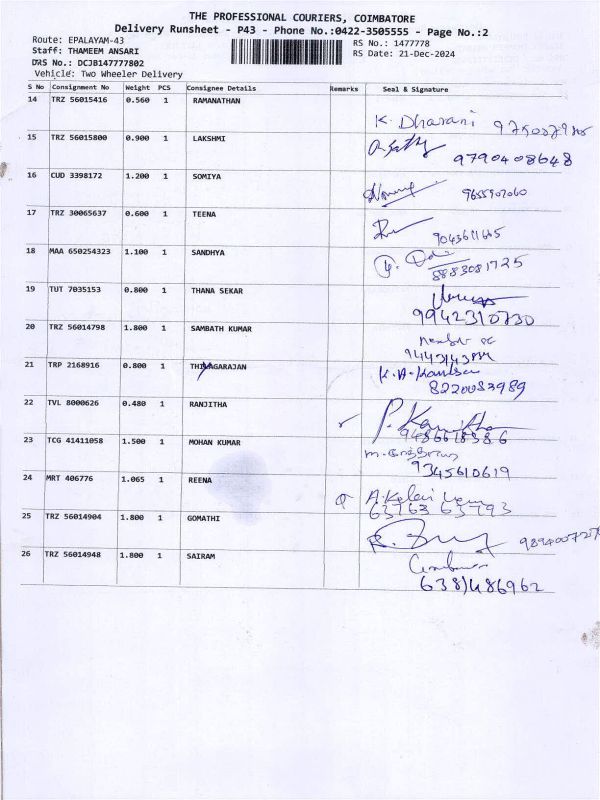 THE PROFESSIONAL COURIERS, COIMBATORE
Delivery Runsheet - P43 - Phone No.:0422-3505555 - Page No.:2
Route: EPALAYAM-43
RS No.: 1477778
Staff: THAMEEM ANSARI
RS Date: 21-Dec-2024
DRS No.: DCJB147777802
Vehicle: Two Wheeler Delivery
S No Consignment No Weight PCS Consignee Details Remarks Seal & Signature
14 TRZ 56015416 0.560 1 RAMANATHAN
K. Dharani
15 TRZ 56015800 0.900 1 LAKSHMI
9790408648
16 CUD 3398172 1.200 1 SOMIYA
9655907060
17 TRZ 30065637 0.600 1 TEENA
18 MAA 650254323 1.100 1 SANDHYA
8883081725
19 TUT 7035153 0.800 1 THANA SEKAR
9942310730
20 TRZ 56014798 1.800 1 SAMBATH KUMAR
21 TRP 2168916 0.800 1 THIYAGARAJAN
8220083989
22 TVL 8000626 0.480 1 RANJITHA
9486618386
23 TCG 41411058 1.500 1 MOHAN KUMAR
9345610619
24 MRT 406776 1.065 1 REENA
63763 63793
25 TRZ 56014904 1.800 1 GOMATHI
26 TRZ 56014948 1.800 1 SAIRAM
6381486962